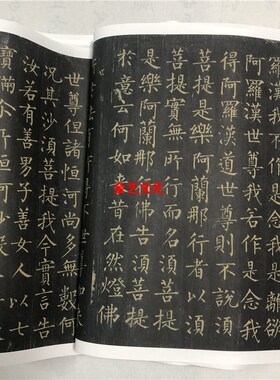 阿羅漢世尊我若作是念我
得阿羅漢道世尊則不說須
菩提是樂阿蘭那行者以須
菩提實無所行而名須菩提
是樂阿蘭那行佛告須菩提
於意云何如來昔在然燈佛
世尊但諸恒河尚多無數何
況其沙須菩提我今實言告
汝若有善男子善女人以七
寶滿尒所恒河沙